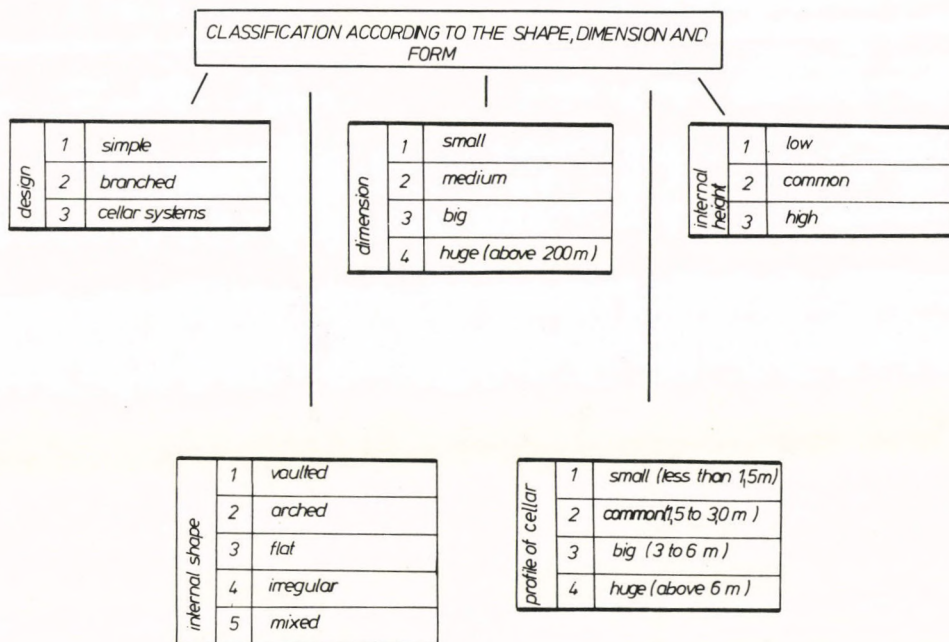 CLASSIFICATION ACCORDING TO THE SHAPE, DIMENSION AND
FORM
design
1 simple
2 branched
3 cellar systems
dimension
1 small
2 medium
3 big
4 huge (above 200 m)
internal
height
1 low
2 common
3 high
internal shape
1 vaulted
2 arched
3 flat
4 irregular
5 mixed
profile of cellar
1 small (less than 1,5m)
2 common(1,5 to 3,0 m)
3 big (3 to 6 m)
4 huge (above 6 m)